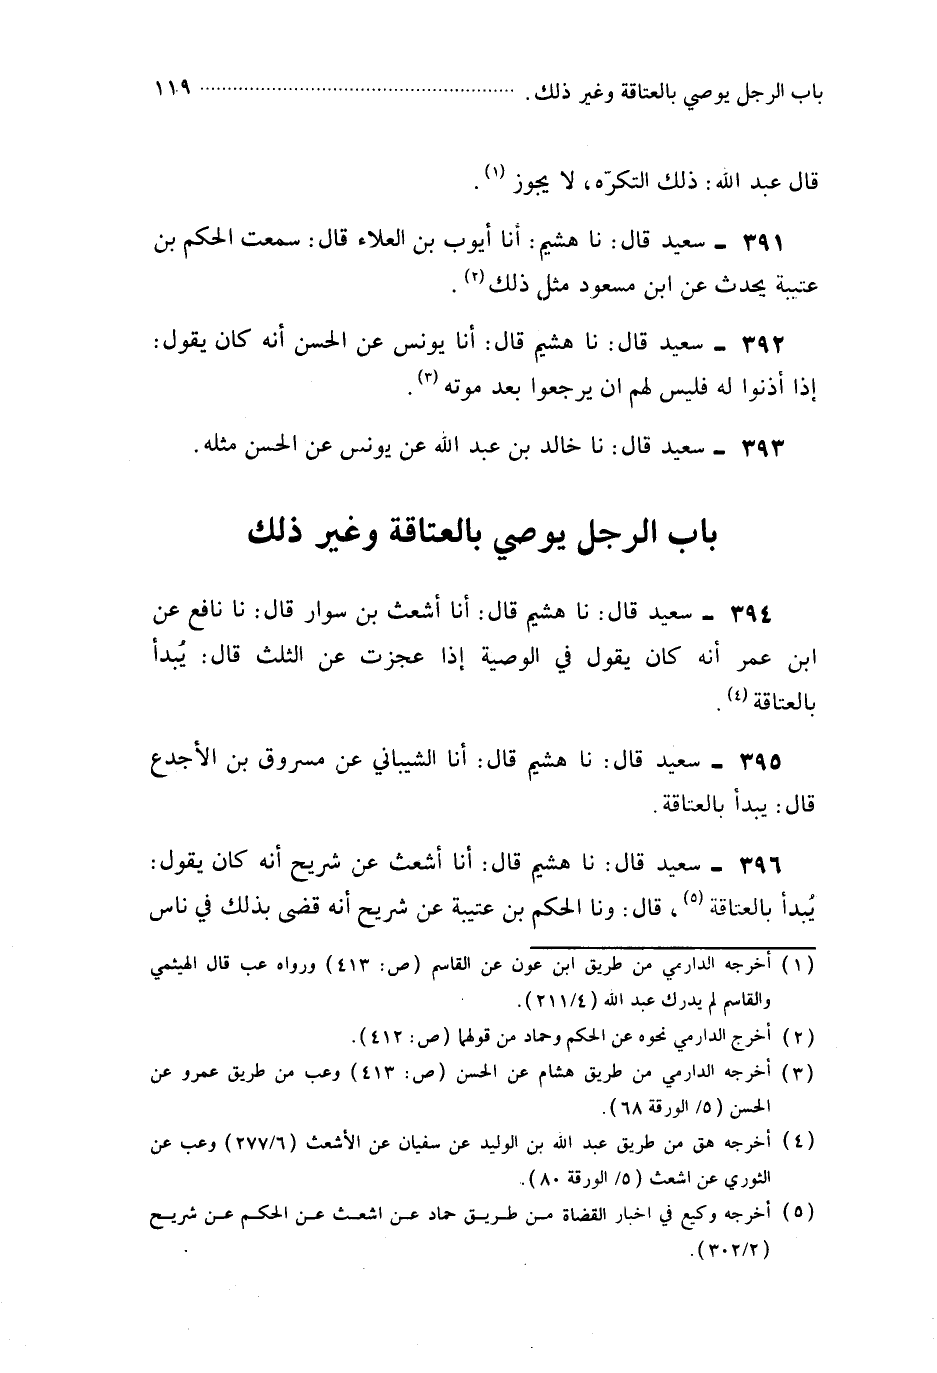 باب الرجل يوصي بالعتاقة وغير ذلك. ........................................ ١١٩
قال عبد الله: ذلك التكرّه، لا يجوز (١).
٣٩١ ـ سعيد قال: نا هشيم: أنا أيوب بن العلاء قال: سمعت الحكم بن
عتيبة يحدث عن ابن مسعود مثل ذلك (٢).
٣٩٢ ـ سعيد قال: نا هشيم قال: أنا يونس عن الحسن أنه كان يقول:
إذا أذنوا له فليس لهم ان يرجعوا بعد موته (٣).
٣٩٣ ـ سعيد قال: نا خالد بن عبد الله عن يونس عن الحسن مثله.
باب الرجل يوصي بالعتاقة وغير ذلك
٣٩٤ ـ سعيد قال: نا هشيم قال: أنا أشعث بن سوار قال: نا نافع عن
ابن عمر أنه كان يقول في الوصية إذا عجزت عن الثلث قال: يُبدأ
بالعتاقة (٤).
٣٩٥ ـ سعيد قال: نا هشيم قال: أنا الشيباني عن مسروق بن الأجدع
قال: يبدأ بالعتاقة.
٣٩٦ ـ سعيد قال: نا هشيم قال: أنا أشعث عن شريح أنه كان يقول:
يُبدأ بالعتاقة (٥)، قال: ونا الحكم بن عتيبة عن شريح أنه قضى بذلك في ناس
(١) أخرجه الدارمي من طريق ابن عون عن القاسم (ص: ٤١٣) ورواه عب قال الهيثمي
والقاسم لم يدرك عبد الله (٢١١/٤).
(٢) أخرج الدارمي نحوه عن الحكم وحماد من قولهما (ص: ٤١٢).
(٣) أخرجه الدارمي من طريق هشام عن الحسن (ص: ٤١٣) وعب من طريق عمرو عن
الحسن (٥/ الورقة ٦٨).
(٤) أخرجه هق من طريق عبد الله بن الوليد عن سفيان عن الأشعث (٢٧٧/٦) وعب عن
الثوري عن اشعث (٥/ الورقة ٨٠).
(٥) أخرجه وكيع في اخبار القضاة من طريق حماد عن اشعث عن الحكم عن شريح
(٣٠٢/٢).